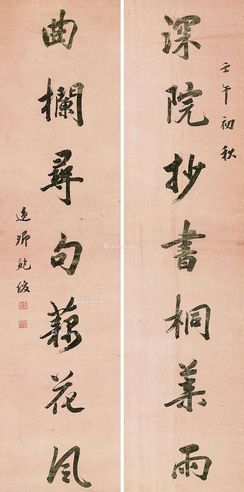 壬午初秋
深院抄書桐葉雨
曲欄尋句藕花風
逸卿鮑俊